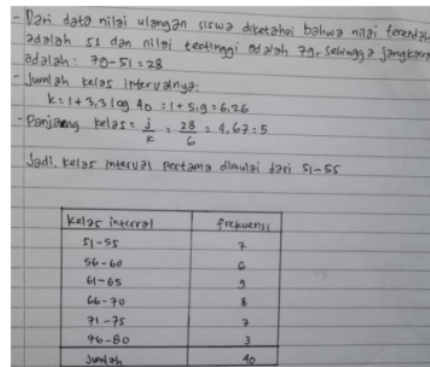 - Dari data nilai ulangan siswa diketahui bahwa nilai terendah
adalah 51 dan nilai tertinggi adalah 79. Sehingga jangkauan
adalah: 79-51=28
- Jumlah kelas intervalnya:
k=1+3,3 log 40 = 1+5,9=6,26
- Panjaeng kelas = j/k = 28/6 = 4,67=5
Jadi, kelas interval pertama dimulai dari 51-55
kelas interval frekuensi
51-55 7
56-60 6
61-65 9
66-70 8
71-75 7
76-80 3
Jumlah 40